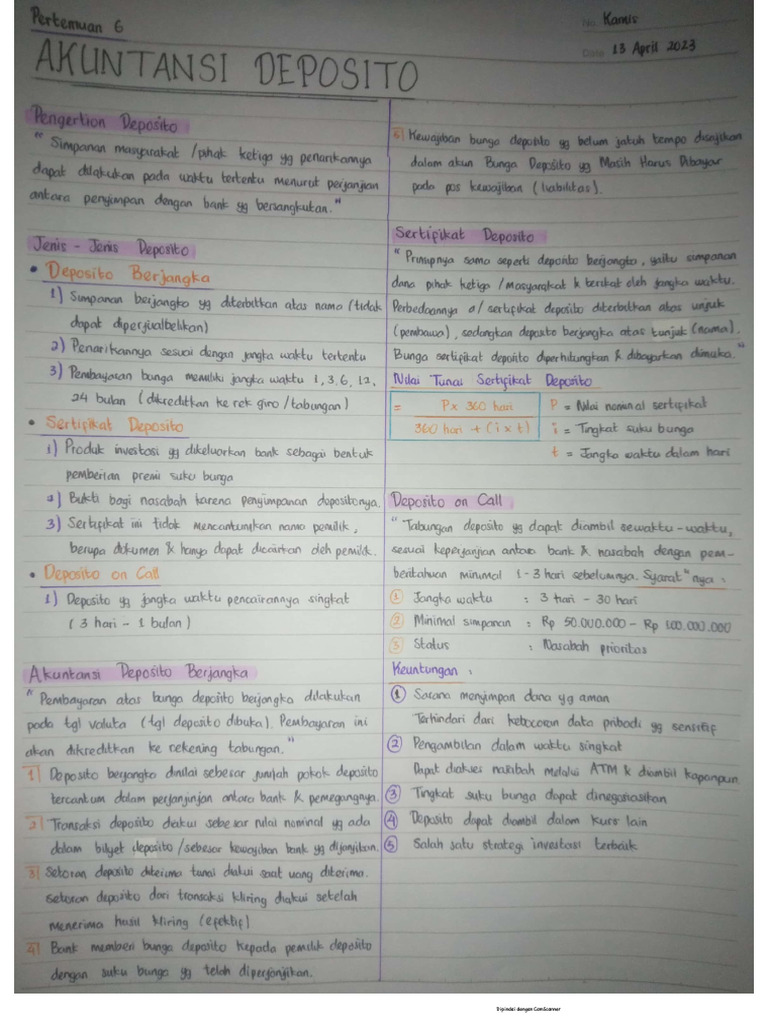 Pertemuan 6
No. Kamis
Date 13 April 2023
AKUNTANSI DEPOSITO
Pengertian Deposito
"Simpanan masyarakat /pihak ketiga yg penarikannya
dapat dilakukan pada waktu tertentu menurut perjanjian
antara penyimpan dengan bank yg bersangkutan."
Jenis - Jenis Deposito
• Deposito Berjangka
1) Simpanan berjangka yg diterbitkan atas nama (tidak
dapat diperjualbelikan)
2) Penarikannya sesuai dengan jangka waktu tertentu
3) Pembayaran bunga memiliki jangka waktu 1, 3, 6, 12,
24 bulan (dikreditkan ke rek giro /tabungan)
• Sertifikat Deposito
1) Produk investasi yg dikeluarkan bank sebagai bentuk
pemberian premi suku bunga
2) Bukti bagi nasabah karena penyimpanan depositonya.
3) Sertifikat ini tidak mencantumkan nama pemilik,
berupa dokumen & hanya dapat dicairkan oleh pemilik.
• Deposito on Call
1) Deposito yg jangka waktu pencairannya singkat
(3 hari - 1 bulan)
Akuntansi Deposito Berjangka
"Pembayaran atas bunga deposito berjangka dilakukan
pada tgl valuta (tgl deposito dibuka). Pembayaran ini
akan dikreditkan ke rekening tabungan."
1 Deposito berjangka dinilai sebesar jumlah pokok deposito
tercantum dalam perjanjinjan antara bank & pemegangnya.
2 Transaksi deposito diakui sebesar nilai nominal yg ada
dalam bilyet deposito /sebesar kewajiban bank yg dijanjikan.
3 Setoran deposito diterima tunai diakui saat uang diterima.
Setoran deposito dari transaksi kliring diakui setelah
menerima hasil kliring (efektif)
4 Bank memberi bunga deposito kepada pemilik deposito
dengan suku bunga yg telah diperjanjikan.
5 Kewajiban bunga deposito yg belum jatuh tempo disajikan
dalam akun Bunga Deposito yg Masih Harus Dibayar
pada pos kewajiban (liabilitas).
Sertifikat Deposito
"Prinsipnya sama seperti deposito berjangka, yaitu simpanan
dana pihak ketiga /masyarakat & terikat oleh jangka waktu.
Perbedaannya a/ sertifikat deposito diterbitkan atas unjuk
(pembawa), sedangkan deposito berjangka atas tunjuk (nama).
Bunga sertifikat deposito diperhitungkan & dibayarkan dimuka."
Nilai Tunai Sertifikat Deposito
= P x 360 hari
360 hari + (i x t)
P = Nilai nominal sertifikat
i = Tingkat suku bunga
t = Jangka waktu dalam hari
Deposito on Call
"Tabungan deposito yg dapat diambil sewaktu-waktu,
sesuai keperjanjian antara bank & nasabah dengan pem-
beritahuan minimal 1-3 hari sebelumnya. Syarat" nya :
1 Jangka waktu : 3 hari - 30 hari
2 Minimal simpanan : Rp 50.000.000 - Rp 100.000.000
3 Status : Nasabah prioritas
Keuntungan :
1 Sarana menyimpan dana yg aman
Terhindari dari kebocoran data pribadi yg sensitif
2 Pengambilan dalam waktu singkat
Dapat diakses nasabah melalui ATM & diambil kapanpun
3 Tingkat suku bunga dapat dinegosiasikan
4 Deposito dapat diambil dalam kurs lain
5 Salah satu strategi investasi terbaik
Dipindai dengan CamScanner